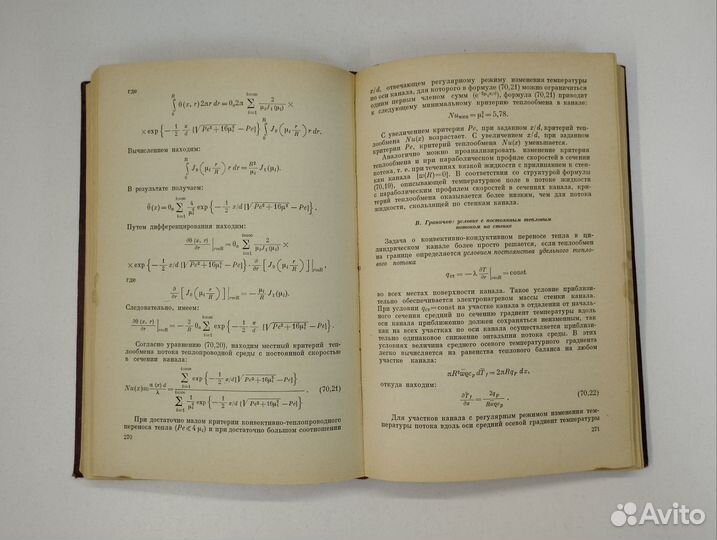 где
∫₀ᴿ θ(x, r) 2πr dr = θ₀2π ∑ 2/(μᵢJ₁(μᵢ)) ×
× exp {− 1/2 x/d [√Pe²+16μᵢ² − Pe]} ∫₀ᴿ J₀(μᵢ r/R) r dr.
Вычислением находим:
∫₀ᴿ J₀(μᵢ r/R) r dr = R²/μᵢ J₁(μᵢ).
В результате получаем:
θ̄(x) = θ₀ ∑ 4/μᵢ² exp {− 1/2 x/d [√Pe²+16μ² − Pe]}.
Путем дифференцирования находим:
∂θ(x, r)/∂r |r=R = θ₀ ∑ 2/(μᵢJ₁(μᵢ)) ×
× exp {− 1/2 x/d [√Pe²+16μᵢ² − Pe]} · ∂/∂r [J₀(μᵢ r/R)]|r=R,
где
∂/∂r [J₀(μᵢ r/R)]|r=R = − μᵢ/R J₁(μᵢ).
Следовательно, имеем:
∂θ(x, r)/∂r |r=R = − 2/R θ₀ ∑ exp {− 1/2 x/d [√Pe²+16μᵢ² − Pe]}.
Согласно уравнению (70,20), находим местный критерий теп-
лообмена потока теплопроводной среды с постоянной скоростью
в сечении канала:
Nu(x) = α(x) d/λ = ∑ exp {− 1/2 x/d [√Pe²+16μᵢ² − Pe]} / ∑ 1/μᵢ² exp {− 1/2 x/d [√Pe²+16μᵢ² − Pe]}. (70,21)
При достаточно малом критерии конвективно-теплопроводного
переноса тепла (Pe ≪ 4 μᵢ) и при достаточно большом соотношении
270
x/d, отвечающем регулярному режиму изменения температуры
по оси канала, для которого в формуле (70,21) можно ограничиться
одним первым членом сумм, формула (70,21) приводит
к следующему минимальному критерию теплообмена в канале:
Nuмин = μ₁² = 5,78.
С увеличением критерия Pe, при заданном x/d, критерий теп-
лообмена Nu(x) возрастает. С увеличением x/d, при заданном
критерии Pe, критерий теплообмена Nu(x) уменьшается.
Аналогично можно проанализировать изменение критерия
теплообмена и при параболическом профиле скоростей в сечении
потока, т. е. при течении вязкой жидкости с прилипанием к стен-
кам канала [w(R)=0]. В соответствии со структурой формулы
(70,19), описывающей температурное поле в потоке жидкости
с параболическим профилем скоростей в сечениях канала, кри-
терий теплообмена оказывается более низким, чем для потока
жидкости, скользящий по стенкам канала.
В. Граничное условие с постоянным тепловым
потоком на стенке
Задача о конвективно-кондуктивном переносе тепла в ци-
линдрическом канале более просто решается, если теплообмен
на границе определяется условием постоянства удельного тепло-
вого потока
qст = −λ ∂T/∂r = const
во всех местах поверхности канала. Такое условие приблизи-
тельно обеспечивается электронагревом массы стенки канала.
При qст=const на участке канала в отдалении от началь-
ного сечения средний по сечению градиент температуры вдоль
оси канала приближенно должен сохраняться неизменным, так
как на всех участках по оси канала осуществляется приблизи-
тельно одинаковое снижение энтальпии потока среды. В этих
условиях величина среднего осевого температурного градиента
легко вычисляется на равенства теплового баланса на любом
участке канала:
πR²w̄ϱcp dT̄f = 2πRqF dx,
откуда находим:
∂T̄f/∂x = 2qF/(Rw̄ϱcp). (70,22)
Для участков канала с регулярным режимом изменения тем-
пературы потока вдоль оси средний осевой градиент температуры
271
Avito